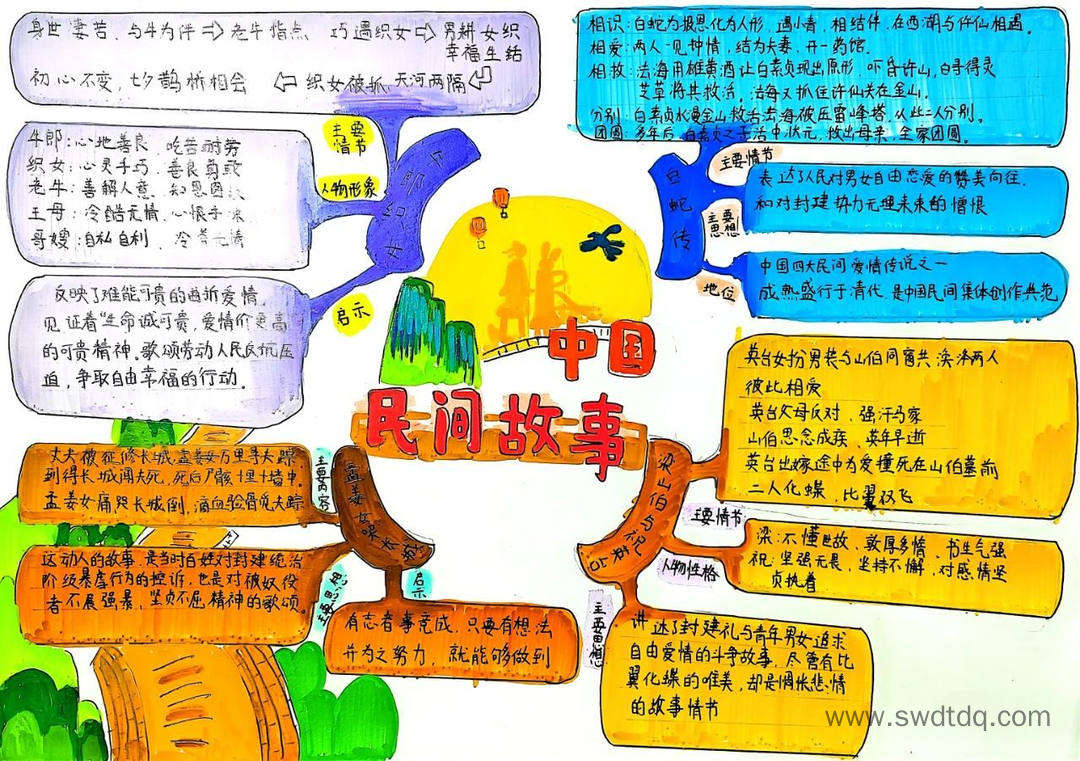 中国
民间故事
牛郎织女
主要
情节
身世凄苦,与牛为伴 ⇨ 老牛指点 巧遇织女 ⇨ 男耕女织
幸福生结
初心不变,七夕鹊桥相会 ⇦ 织女被抓,天河两隔
人物形象
牛郎:心地善良,吃苦耐劳
织女:心灵手巧,善良勇敢
老牛:善解人意,知恩图
王母:冷酷无情,心恨手
哥嫂:自私自利,冷 无情
启示
反映了难能可贵的曲折爱情,
见证着“生命诚可贵,爱情价更高
的可贵精神。歌颂劳动人民反抗压
迫,争取自由幸福的行动。
白蛇传
主要情节
相识:白蛇为报恩化为人形,遇小青,相结伴,在西湖与许仙相遇。
相爱:两人一见钟情,结为夫妻,开一药馆。
相救:法海用雄黄酒让白素贞现出原形,吓昏许山,白寻得灵
艾草将其救活,法海又抓住许仙关在金山。
分别:白素贞水漫金山救活法海被压雷峰塔,从此二人分别。
团圆:多年后,白素贞之子活中状元,救出母亲,全家团圆。
主要
思想
表达了人民对男女自由恋爱的赞美向往,
和对封建势力无理未来的憎恨
地位
中国四大民间爱情传说之一
成熟盛行于清代,是中国民间集体创作典范
孟姜女哭长城
主要内容
丈夫被征修长城,孟姜女万里寻夫踪
到得长城闻夫死,死后尸骸十里十墙中。
孟姜女痛哭长城倒,滴血验骨见夫踪
主要思想
这动人的故事,是当时百姓对封建统治
阶级暴虐行为的控诉,也是对被奴役
者不展强暴,坚贞不屈精神的歌颂。
启示
有志者事竟成,只要有想法
并为之努力,就能够做到
梁山伯与祝英台
主要情节
英台女扮男装与山伯同窗共 两人
彼此相爱
英台父母反对,强汗马家
山伯思念成疾,英年早逝
英台出嫁途中为爱撞死在山伯墓前
二人化蝶,比翼双飞
人物性格
梁:不懂世故,敦厚多情,书生气强
祝:坚强无畏,坚持不懈,对感情坚
贞执着
主要思想
讲达了封建礼与青年男女追求
自由爱情的斗争故事,尽管有比
翼化蝶的唯美,却是惆怅悲情
的故事情节
www.swdtdq.com